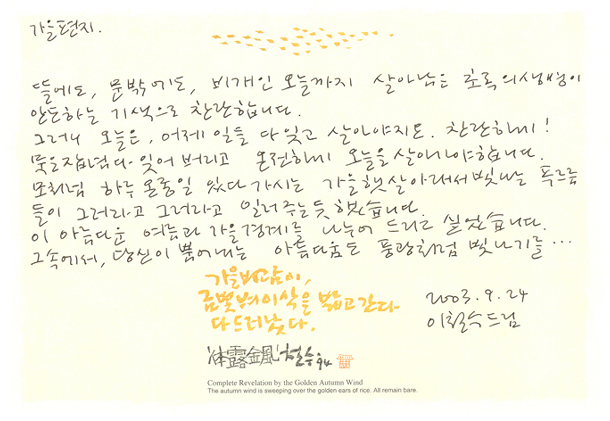 가을편지.
들에도, 문밖에도, 비개인 오늘까지 살아남은 초록의 생명이
안도하는 기색으로 찬란합니다.
그러니 오늘은, 어제 일들 다 잊고 살아야지요. 찬란하게!
묵은 잡념 다 잊어버리고 온전하게 오늘을 살아내야합니다.
모처럼 하루 온종일 있다 가시는 가을햇살아래서 빛나는 푸르름
들이 그러라고 그러라고 일러주는듯 했습니다.
이 아름다운 여름과 가을 경계를 나누어 드리고 싶었습니다.
그속에서, 당신이 뿜어내는 아름다움도 풍광처럼 빛나기를…
가을바람이,
금빛벼이삭을 밟고간다
다 드러났다.
2003. 9. 24
이철수 드림
体露金風 철수 94
Complete Revelation by the Golden Autumn Wind
The autumn wind is sweeping over the golden ears of rice. All remain bare.